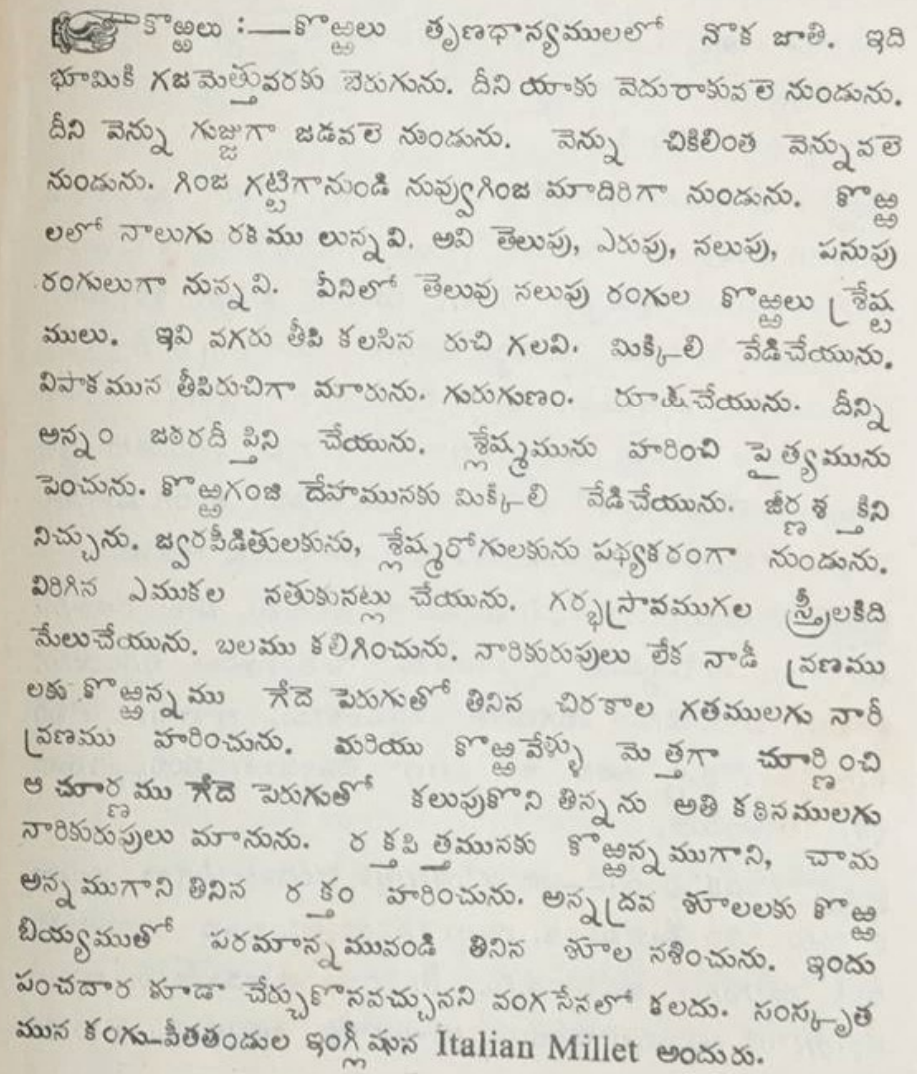 కొఱ్ఱలు :—కొఱ్ఱలు తృణధాన్యములలో నొక జాతి. ఇది
భూమికి గజమెత్తువరకు బెరుగును. దీని యాకు వెదురాకువలె నుండును.
దీని వెన్ను గుజ్జుగా జడవలె నుండును. వెన్ను చికిలింత వెన్నువలె
నుండును. గింజ గట్టిగానుండి నువ్వుగింజ మాదిరిగా నుండును. కొఱ్ఱ
లలో నాలుగు రకము లున్నవి. అవి తెలుపు, ఎరుపు, నలుపు, పసుపు
రంగులుగా నున్నవి. వీనిలో తెలువు నలుపు రంగుల కొఱ్ఱలు శ్రేష్ట
ములు. ఇవి వగరు తీపి కలసిన రుచి గలవి. మిక్కిలి వేడిచేయును.
విపాకమున తీపిరుచిగా మారును. గురుగుణం. రూక్షచేయును. దీన్ని
అన్నం జఠరదీప్తిని చేయును. శ్లేష్మమును హరించి పైత్యమును
పెంచును. కొఱ్ఱగంజి దేహమునకు మిక్కిలి వేడిచేయును. జీర్ణశక్తిని
నిచ్చును. జ్వరపీడితులకును, శ్లేష్మరోగులకును పథ్యకరంగా నుండును.
విరిగిన ఎముకల నతుకునట్లు చేయును. గర్భస్రావముగల స్త్రీలకిది
మేలుచేయును. బలము కలిగించును. నారికురుపులు లేక నాడీ వ్రణము
లకు కొఱ్ఱన్నము గేదె పెరుగుతో తినిన చిరకాల గతములగు నారీ
వ్రణము హరించును. మరియు కొఱ్ఱవేళ్ళు మెత్తగా చూర్ణించి
ఆ చూర్ణము గేదె పెరుగుతో కలుపుకొని తిన్నను అతి కఠినములగు
నారికురుపులు మానును. రక్తపిత్తమునకు కొఱ్ఱన్నముగాని, చామ
అన్నముగాని తినిన రక్తం హరించును. అన్నద్రవ శూలలకు కొఱ్ఱ
బియ్యముతో పరమాన్నమువండి తినిన శూల నశించును. ఇందు
పంచదార కూడా చేర్చుకొనవచ్చునని వంగసేనలో కలదు. సంస్కృత
మున కంగు-పీతతండుల ఇంగ్లీషున Italian Millet అందురు.